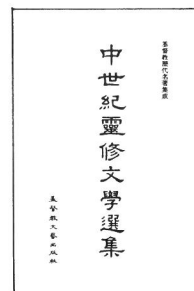 基督教歷代名著集成
中世紀靈修文學選集
基督教文藝出版社